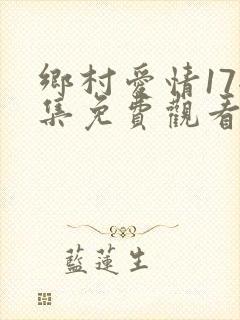 鄉村愛情17
集免費觀看
藍蓮生